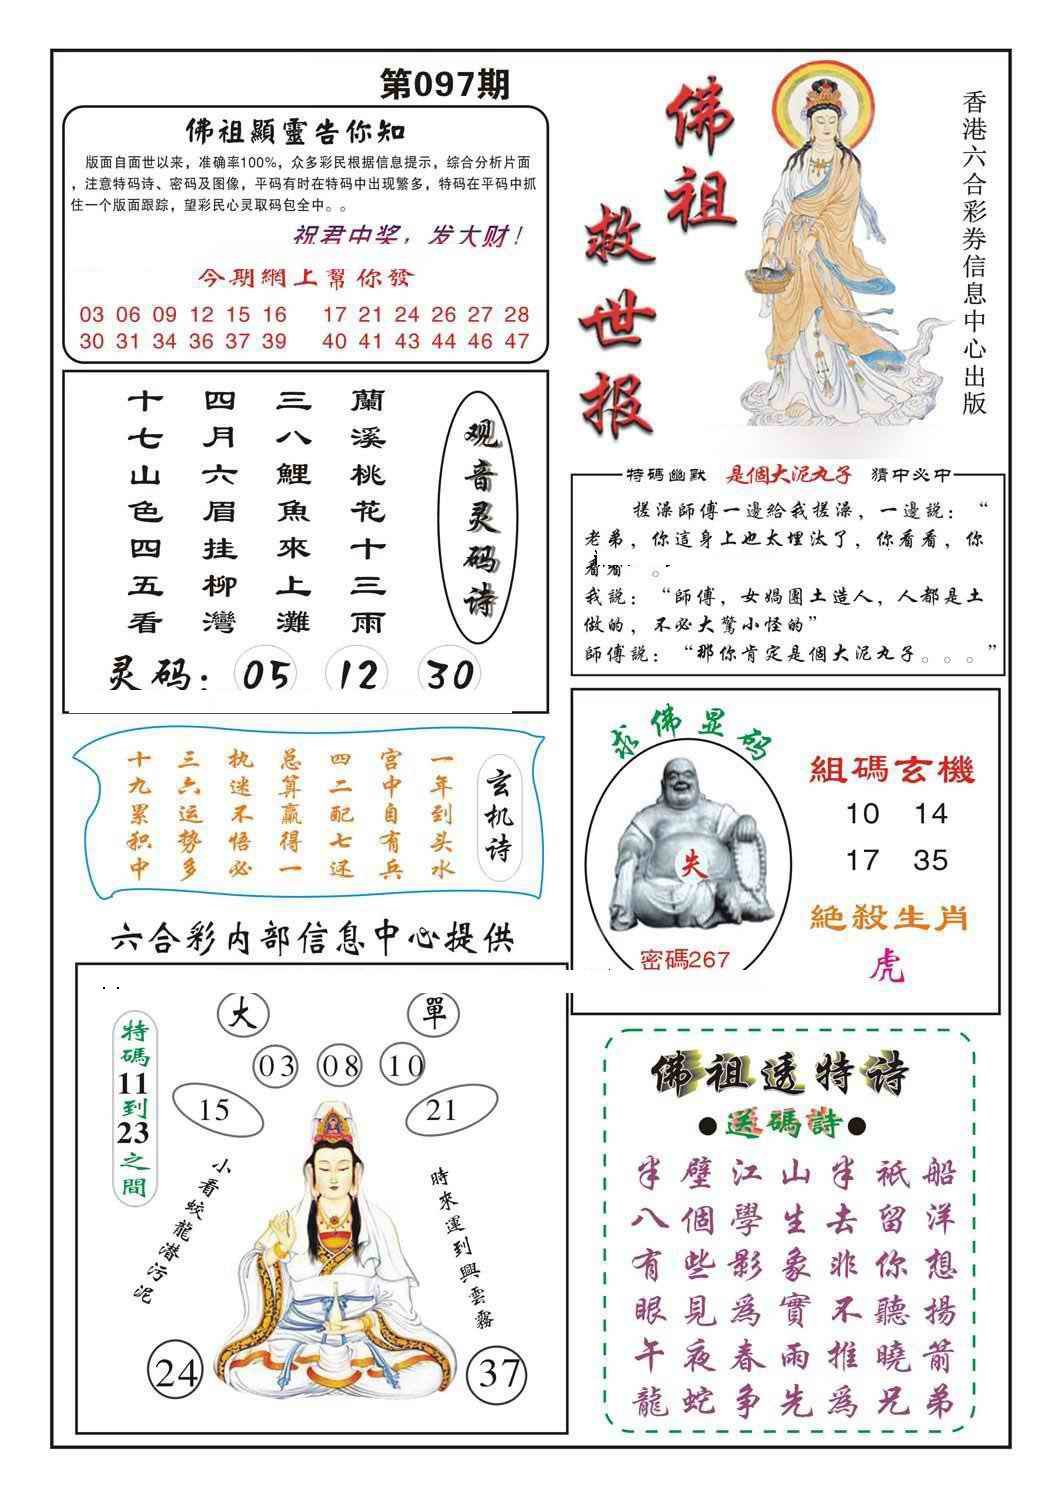 第097期
佛祖顯靈告你知
版面自面世以来，准确率100%，众多彩民根据信息提示，综合分析片面
，注意特码诗、密码及图像，平码有时在特码中出现繁多，特码在平码中抓
住一个版面跟踪，望彩民心灵取码包全中。。
祝君中奖，发大财！
今期網上幫你發
03 06 09 12 15 16 17 21 24 26 27 28
30 31 34 36 37 39 40 41 43 44 46 47
佛祖
救世报
香港六合彩券信息中心出版
观音灵码诗
蘭溪桃花十三雨
三八鯉魚來上灘
四月六眉挂柳灣
十七山色四五看
灵码：05 12 30
特碼幽默 是個大泥丸子 猜中必中
搓澡師傅一邊給我搓澡，一邊説：“
老弟，你這身上也太埋汰了，你看看，你
看看 。
我説：“師傅，女媧團土造人，人都是土
做的，不必大驚小怪的”
師傅説：“那你肯定是個大泥丸子。。。”
玄机诗
一年到头水
宫中自有兵
四二配七还
总算赢得一
执迷不悟必
三六运势多
十九累积中
求佛显码
失
密碼267
組碼玄機
10 14
17 35
絶殺生肖
虎
六合彩内部信息中心提供
特碼11到23之間
大 單
03 08 10
15 21
小看蛟龍潜污泥
時來運到興雲霧
24 37
佛祖透特诗
●送碼詩●
船洋想揚箭弟
祇留你聽曉兄
半去非不推為
山生象實雨先
江學影為春争
壁個些見夜蛇
半八有眼午龍